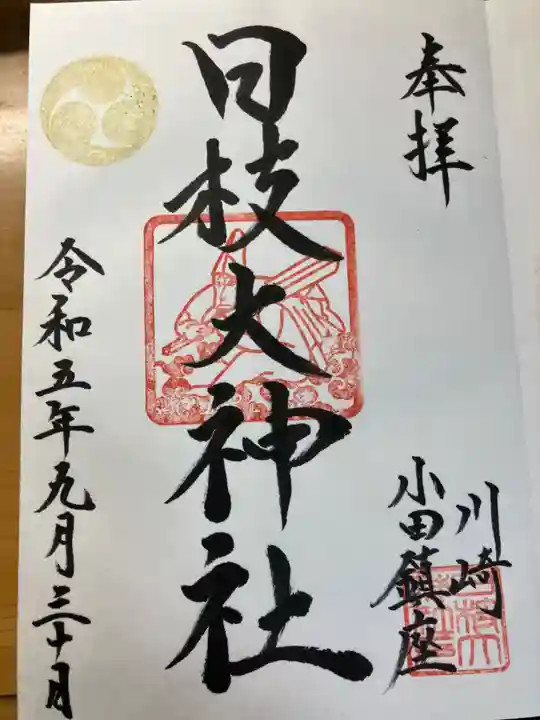 奉拝
川崎
小田鎮座
日枝大神社
令和五年九月三十日